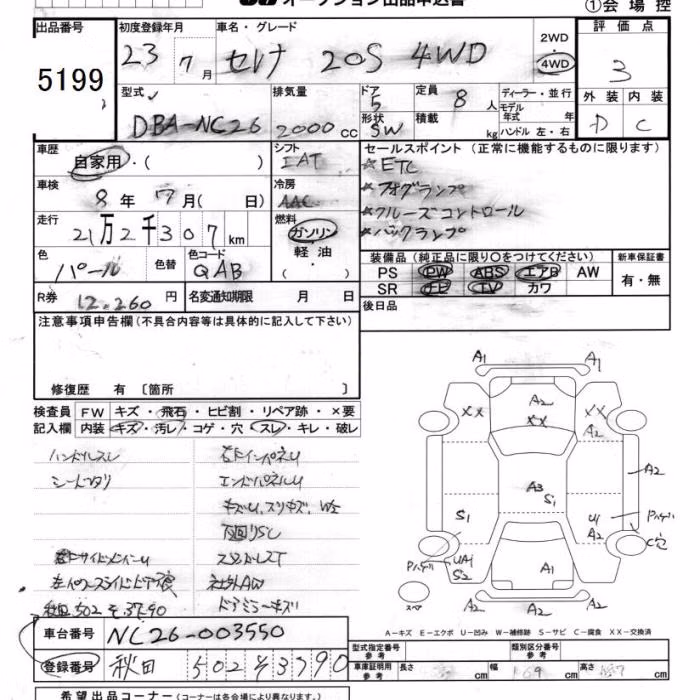 オークション出品申込書
①会場控
出品番号 初度登録年月 車名・グレード 2WD 評価点
5199 23 7月 セレナ 20S 4WD 4WD 3
型式 排気量 ドア 5 定員 8人 ディーラー・並行 外装 内装
DBA-NC26 2000cc 形状 SW 積載 kg モデル年式 年 ハンドル 左・右 D C
車歴 自家用・( ) シフト IAT セールスポイント (正常に機能するものに限ります)
車検 8年 7月( 日) 冷房 AAC ☆ETC
☆フォグランプ
走行 21万2千307km 燃料 ガソリン ☆クルーズコントロール
軽油 ☆バックランプ
色 パール 色替 色コード QAB ・( )
装備品 (純正品に限り○をつけてください) 新車保証書
PS PW ABS エアB AW 有・無
R券 12.260円 名変通知期限 月 日 SR ナビ TV カワ
後日品
注意事項申告欄(不具合内容等は具体的に記入して下さい)
修復歴 有 〔箇所 〕
検査員 FW キズ・飛石・ヒビ割・リペア跡・×要
記入欄 内装 キズ・汚レ・コゲ・穴・スレ・キレ・破レ
ハンドルスレ
エンドパネルU
キズU、スリキズ、W2
下回りSL
社外AW
ドアミラーキズ
秋田502 そ 3790
A1 A1
A2
XX XX XX
A2
A2
A3
S1
S1 U1 Pハゲ
A2 C穴
Pハゲ UA1
S2 A1
スペア A2 A2 A2
A-キズ E-エクボ U-凹み W-補修跡 S-サビ C-腐食 XX-交換済
車台番号 NC26-003550
型式指定番号 参考 類別区分番号 参考
登録番号 秋田 502 そ 3790
車庫証明用 参考 長さ cm 幅 169 cm 高さ cm
希望出品コーナー(コーナーは各会場により異なります。)